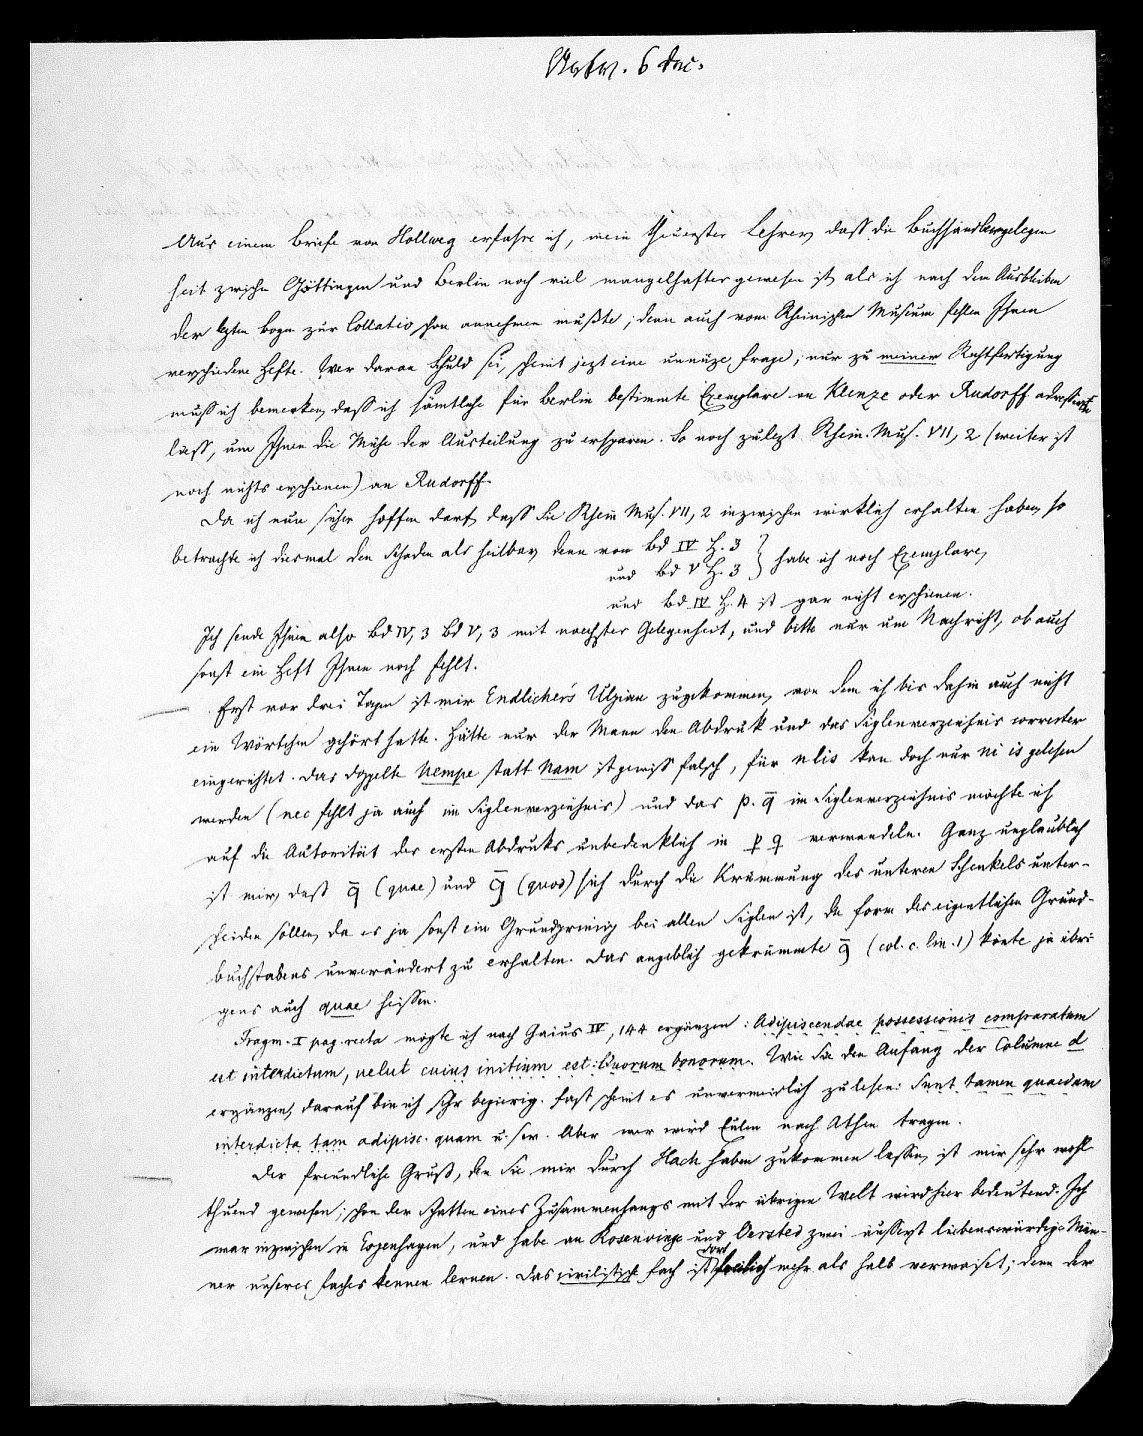 6 Dec.
Aus einem Briefe von Hollweg erfahre ich, mein theuerster Lehrer, daß die Buchhändlergelegen
heit zwischen Göttingen und Berlin noch viel mangelhafter gewesen ist, als ich nach dem Ausbleiben
der lezten Bogen zur Collatio schon annehmen mußte; denn auch vom Rheinischen Museum fehlen Ihnen
verschiedene Hefte. Wer daran Schuld sei, scheint jezt eine unnüze Frage; nur zu meiner Rechtfertigung
muß ich bemerken, daß ich sämtliche für Berlin bestimmte Exemplare an Klenze oder Rudorff adressiren
lasse, um Ihnen die Mühe der Austeilung zu ersparen. So noch zulezt Rhein. Mus. VII, 2 (weiter ist
noch nichts erschienen) an Rudorff.
Da ich nun sicher hoffen darf, daß Sie Rhein Mus. VII, 2 inzwischen wirklich erhalten haben, so
betrachte ich diesmal den Schaden als heilbar, denn von Bd IV H. 3
und Bd V H. 3 } habe ich noch Exemplare,
und Bd IV H. 4 ist gar nicht erschienen.
Ich sende Ihnen also Bd IV, 3 Bd V, 3 mit nächster Gelegenheit, und bitte nur um Nachricht, ob auch
sonst ein Heft Ihnen noch fehlt.
Erst vor drei Tagen ist mir Endlicher's Ulpian zugekommen, von dem ich bis dahin auch nicht
ein Wörtchen gehört hatte. Hätte nur der Mann den Abdruk und das Siglenverzeichnis correcter
eingerichtet. Das doppelte Nempe statt Nam ist gewiß falsch, für nlis kan doch nur ni is gelesen
werden (nec fehlt ja auch im Siglenverzeichnis) und das p. q̄ im Siglenverzeichnis möchte ich
auf die Autorität des ersten Abdruks unbedenklich in p q verwandeln. Ganz unglaublich
ist mir, daß q̄ (quae) und q̄ (quod) sich durch die Krümmung des unteren Schenkels unter-
scheiden sollen, da es ja sonst ein Grundprinzip bei allen Siglen ist, die Form des eigentlichen Grund-
buchstabens unverändert zu erhalten. Das angeblich gekrümmte q̄ (col. c. lin. 1) könte ja übri
gens auch quae heissen.
Fragm. I pag. recta mögte ich nach Gaius IV, 144 ergänzen: Adipiscendae possessionis comparatum
est interdictum, velut cuius initium est: Quorum bonorum. Wie Sie den Anfang der Columne d
ergänzen, darauf bin ich sehr begierig. Fast scheint es unvermeidlich zu lesen: Sunt tamen quaedam
interdicta tam adipisc. quam u. s. w. Aber wer wird Eulen nach Athen tragen.
Der freundliche Gruß, den Sie mir durch Hach haben zukommen lassen, ist mir sehr wohl
thuend gewesen; schon der Schatten eines Zusammenhangs mit der übrigen Welt wird hier bedeutend. Ich
war inzwischen in Copenhagen, und habe an Rosenvinge und Oersted zwei äußerst liebenswürdige Män-
ner unseres Faches kennen lernen. Das civilistische Fach ist dort freilich mehr als halb verwaiset; denn der